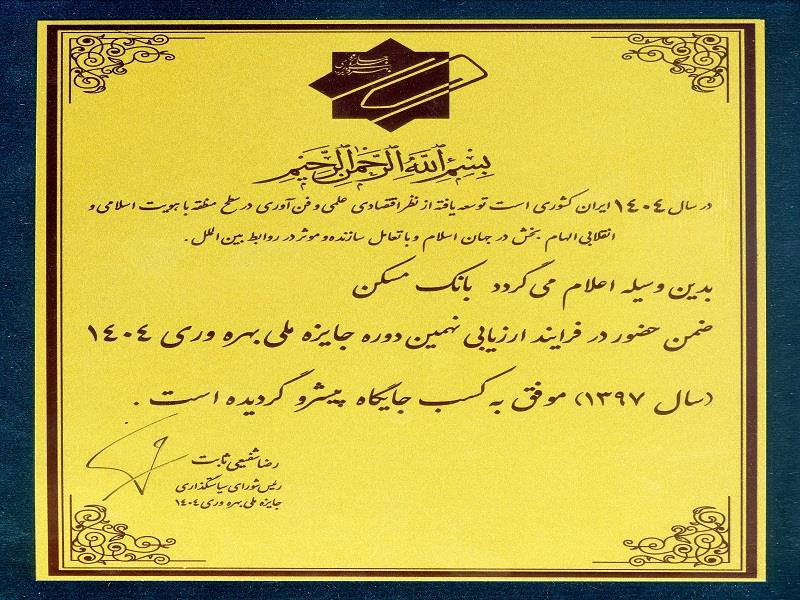 بسم الله الرحمن الرحیم
در سال ۱۴۰۴ ایران کشوری است توسعه یافته از نظر اقتصادی علمی و فن آوری در سطح منطقه با هویت اسلامی و
انقلابی الهام بخش در جهان اسلام و با تعامل سازنده و موثر در روابط بین الملل .
بدین وسیله اعلام می گردد بانک مسکن
ضمن حضور در فرایند ارزیابی نهمین دوره جایزه ملی بهره وری ۱۴۰۴
(سال ۱۳۹۷) موفق به کسب جایگاه پیشرو گردیده است .
رضا شفیعی ثابت
رئیس شورای سیاستگذاری
جایزه ملی بهره وری ۱۴۰۴